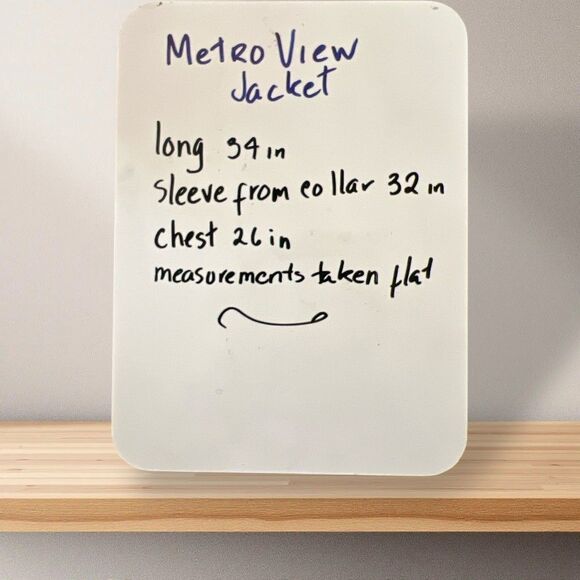 Metro View
Jacket
long 34 in
sleeve from collar 32 in
chest 26 in
measurements taken flat